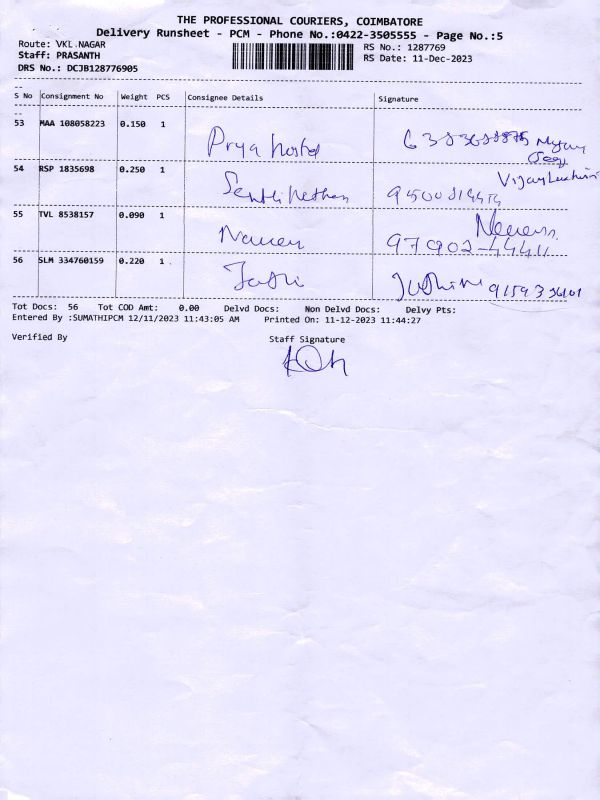 THE PROFESSIONAL COURIERS, COIMBATORE
Delivery Runsheet - PCM - Phone No.:0422-3505555 - Page No.:5
Route: VKL.NAGAR
RS No.: 1287769
Staff: PRASANTH
RS Date: 11-Dec-2023
DRS No.: DCJB128776905
S No Consignment No Weight PCS Consignee Details Signature
53 MAA 108058223 0.150 1 Prya hostel
54 RSP 1835698 0.250 1
55 TVL 8538157 0.090 1 Naveen
97902-44411
56 SLM 334760159 0.220 1
Tot Docs: 56 Tot COD Amt: 0.00 Delvd Docs: Non Delvd Docs: Delvy Pts:
Entered By :SUMATHIPCM 12/11/2023 11:43:05 AM Printed On: 11-12-2023 11:44:27
Verified By Staff Signature